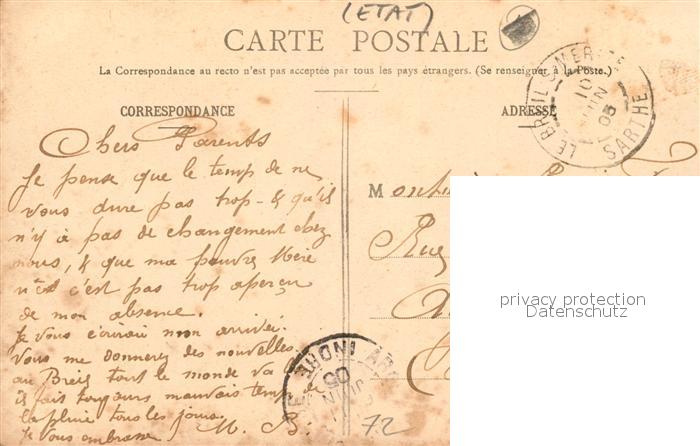 (ETAT)
CARTE POSTALE
La Correspondance au recto n'est pas acceptée par tous les pays étrangers. (Se renseigner à la Poste.)
CORRESPONDANCE
ADRESSE
LE BREIL S MERIZE
10
JUIN
05
SARTHE
Chers Parents
Je pense que le temps de ne
vous dure pas trop - & qu'il
n'y à pas de changement chez
nous, & que ma pauvre Mère
c'est pas trop aperçu
de mon absence.
Je vous écrirai mon arrivée.
Vous me donnerez des nouvelles.
au Breil tout le monde va
il fait toujours mauvais temps de
la pluie tous les jours.
Je vous embrasse M. B.
M
Rue
INDRE
JUIN
05
72
privacy protection
Datenschutz